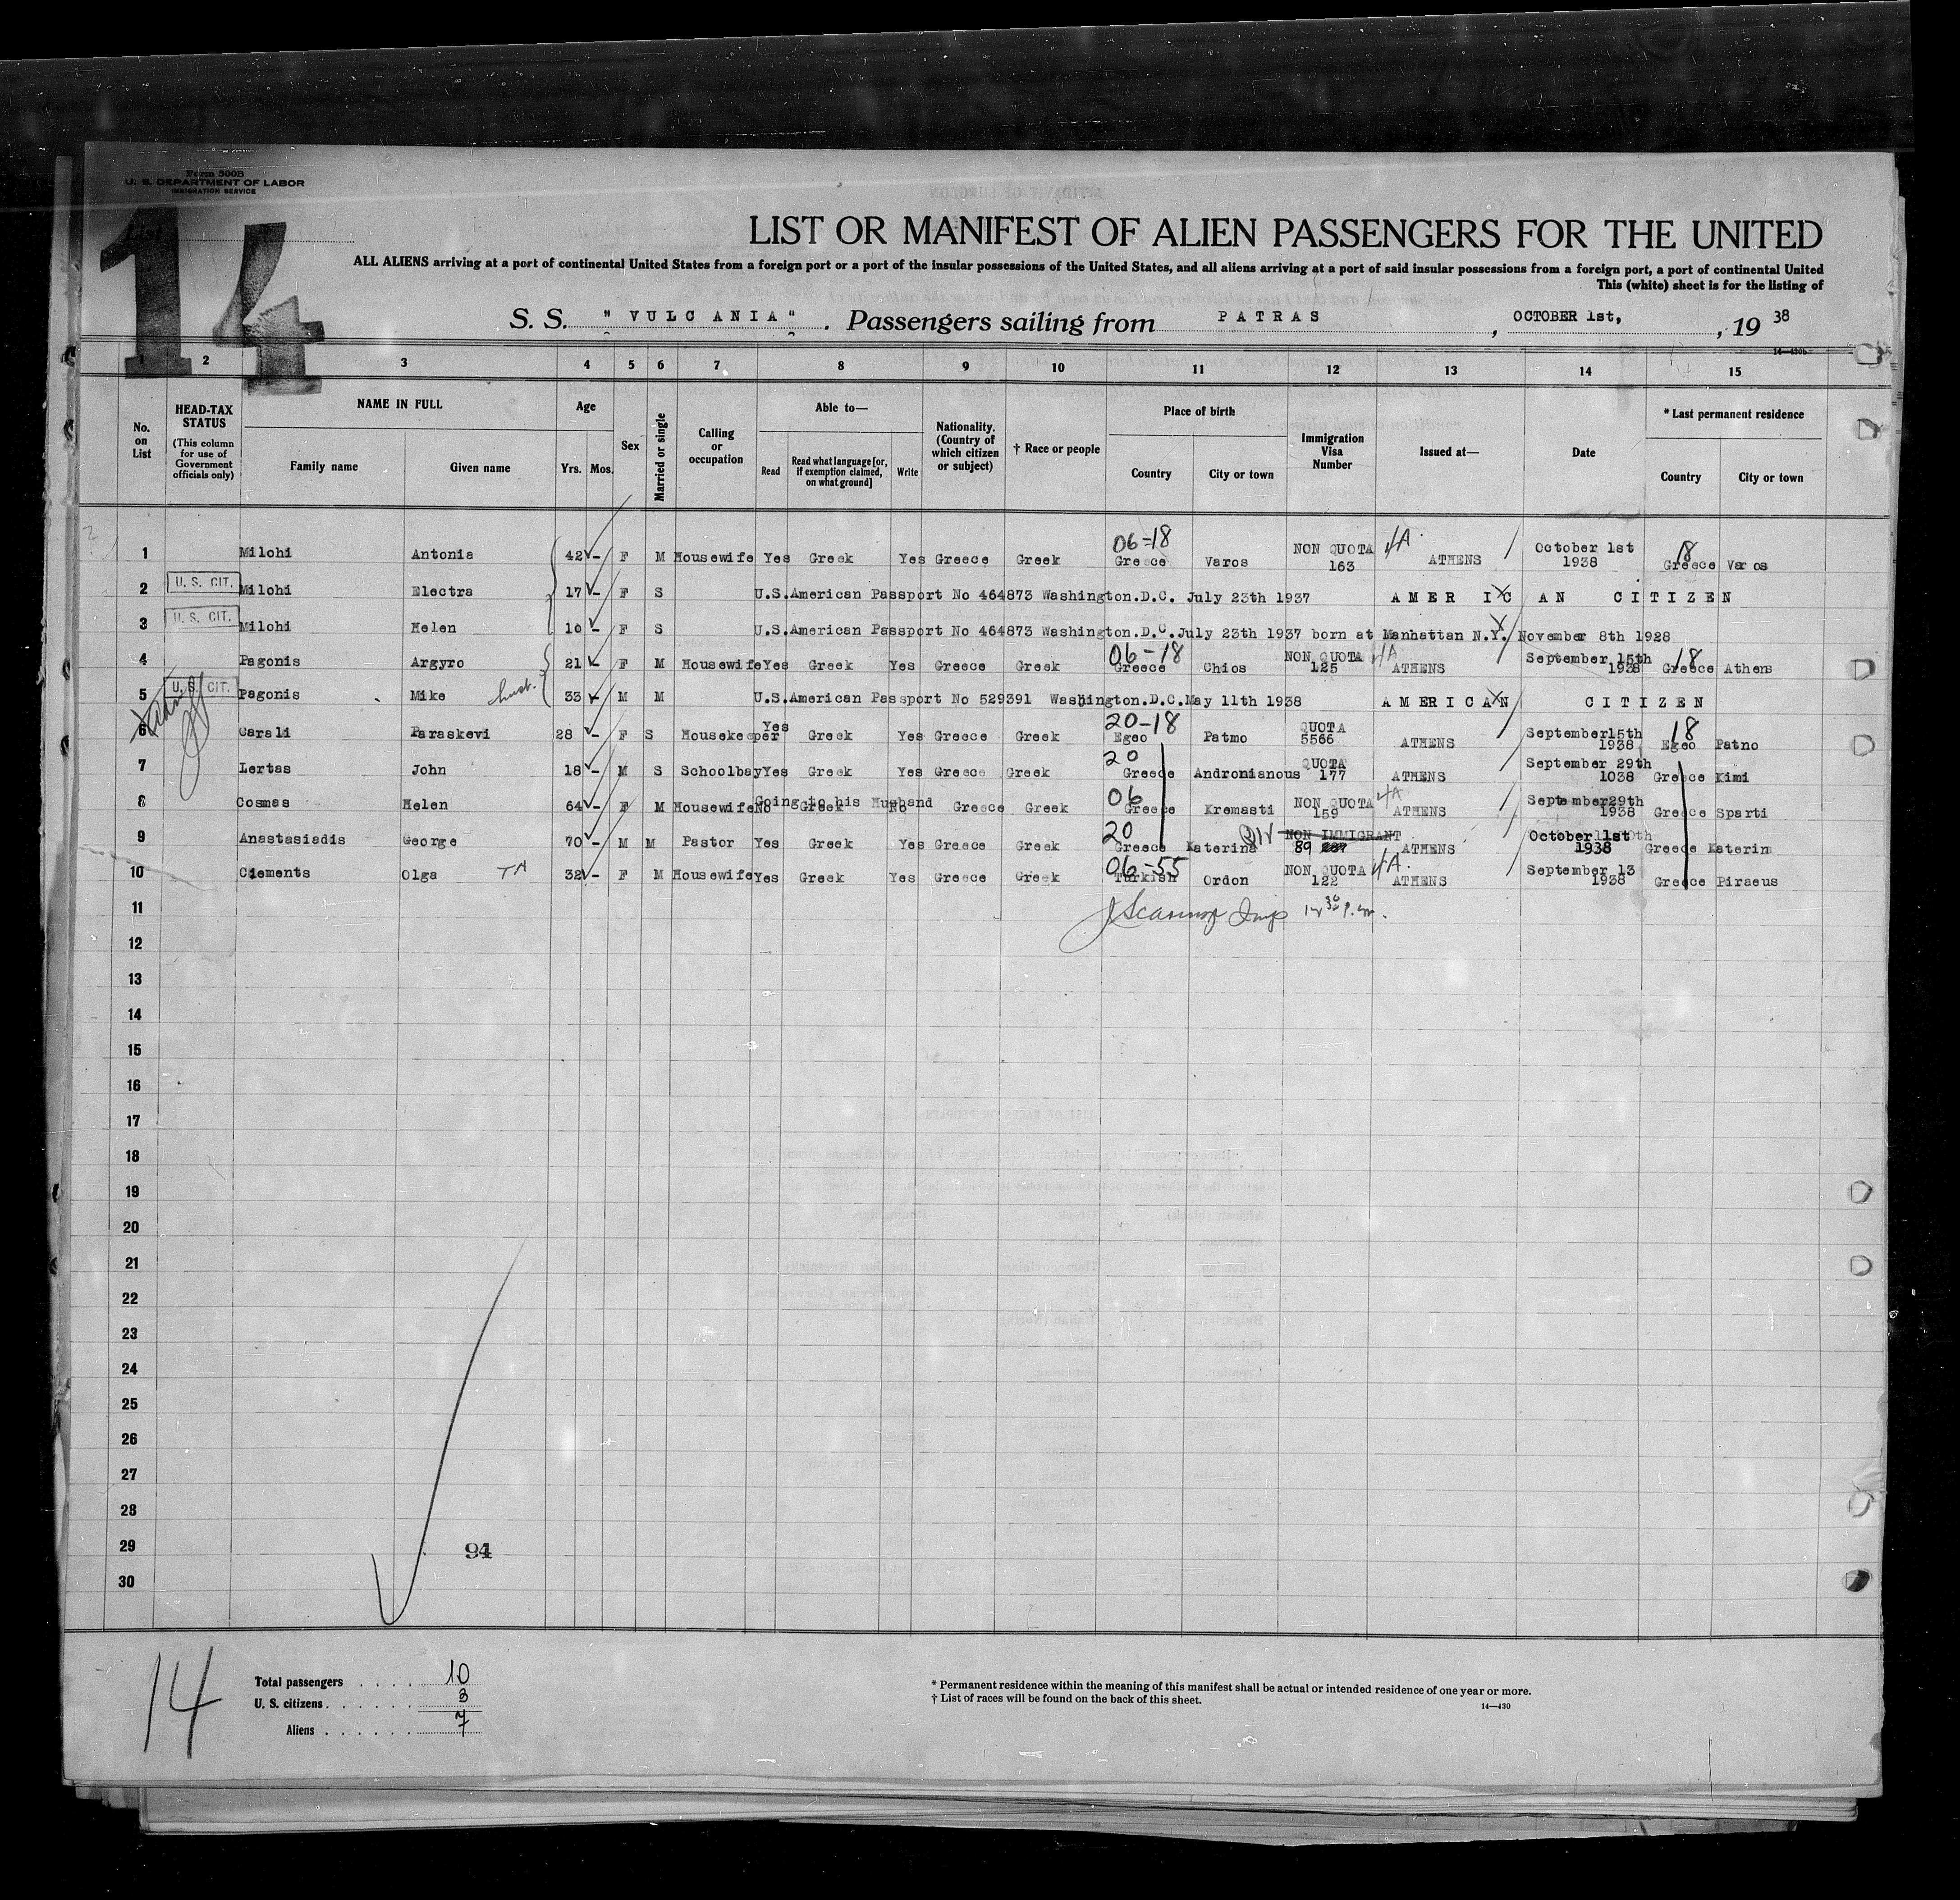 Form 500B
U. S. DEPARTMENT OF LABOR
IMMIGRATION SERVICE
List
14
LIST OR MANIFEST OF ALIEN PASSENGERS FOR THE UNITED
ALL ALIENS arriving at a port of continental United States from a foreign port or a port of the insular possessions of the United States, and all aliens arriving at a port of said insular possessions from a foreign port, a port of continental United
This (white) sheet is for the listing of
S. S. "VULCANIA". Passengers sailing from PATRAS, OCTOBER 1st, 19 38
14—430b
1 2 3 4 5 6 7 8 9 10 11 12 13 14 15
No. on List
HEAD-TAX STATUS (This column for use of Government officials only)
NAME IN FULL Family name Given name
Age Yrs. Mos.
Sex
Married or single
Calling or occupation
Able to— Read Read what language [or, if exemption claimed, on what ground] Write
Nationality. (Country of which citizen or subject)
† Race or people
Place of birth Country City or town
Immigration Visa Number
Issued at—
Date
* Last permanent residence Country City or town
06-18 18
1 Milohi Antonia 42 - F M Housewife Yes Greek Yes Greece Greek Greece Varos NON QUOTA 163 ATHENS October 1st 1938 Greece Varos
2 U. S. CIT. Milohi Electra 17 - F S U.S.American Passport No 464873 Washington.D.C. July 23th 1937 AMERICAN CITIZEN
3 U. S. CIT. Milohi Helen 10 - F S U.S.American Passport No 464873 Washington.D.C.July 23th 1937 born at Manhattan N.Y. November 8th 1928
06-18 18
4 Pagonis Argyro 21 - F M Housewife Yes Greek Yes Greece Greek Greece Chios NON QUOTA 125 ATHENS September 15th 1938 Greece Athens
5 U. S. CIT. Pagonis Mike husb. 33 - M M U.S.American Passport No 529391 Washington.D.C.May 11th 1938 AMERICAN CITIZEN
20-18 18
6 Carali Paraskevi 28 - F S Housekeeper Yes Greek Yes Greece Greek Egeo Patmo QUOTA 5566 ATHENS September15th 1938 Egeo Patno
20
7 Lertas John 18 - M S Schoolbay Yes Greek Yes Greece Greek Greece Andronianous QUOTA 177 ATHENS September 29th 1038 Greece Kimi
Going to his Husband 06
8 Cosmas Helen 64 - F M Housewife No Greek No Greece Greek Greece Kremasti NON QUOTA 159 ATHENS September29th 1938 Greece Sparti
20
9 Anastasiadis George 70 - M M Pastor Yes Greek Yes Greece Greek Greece Katerina NON IMMIGRANT 89 ATHENS October 1st 1938 Greece Katerin
06-55
10 Clements Olga 32 - F M Housewife Yes Greek Yes Greece Greek Turkish Ordon NON QUOTA 122 ATHENS September 13 1938 Greece Piraeus
11
12
13
14
15
16
17
18
19
20
21
22
23
24
25
26
27
28
29 94
30
14
Total passengers . . . . 10
U. S. citizens . . . . . . 3
Aliens . . . . . . 7
* Permanent residence within the meaning of this manifest shall be actual or intended residence of one year or more.
† List of races will be found on the back of this sheet.
14—430